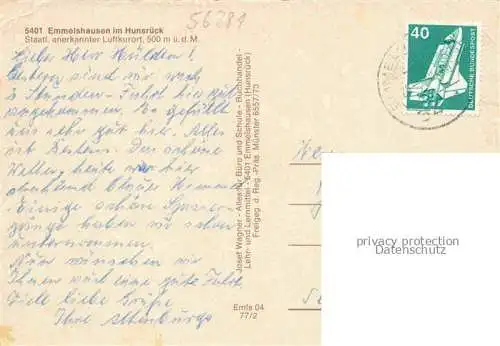 56281
5401 Emmelshausen im Hunsrück
Staatl. anerkannter Luftkurort, 500 m ü. d. M.
Liebe Herr Hülden!
sind wir nach
Stunden- Fahrt hier
angekommen. Es gefällt
uns sehr gut hier. Alles
ist bestens. Das schöne
Wetter, heute war hier
blauer Himmel
Einige schöne Spazier-
gänge haben wir schon
unternommen.
Nun wünschen wir
Ihnen weil eine gute Fahrt.
Viele liebe Grüße
Ihre Altenburgs
Josef Wagner - Alles für Büro und Schule - Buchhandel -
Lehr- und Lernmittel - 5401 Emmelshausen (Hunsrück)
Freigeg. d. Reg.-Präs. Münster 6557/73
Emfs 04
77/2
40
DEUTSCHE BUNDESPOST
privacy protection
Datenschutz